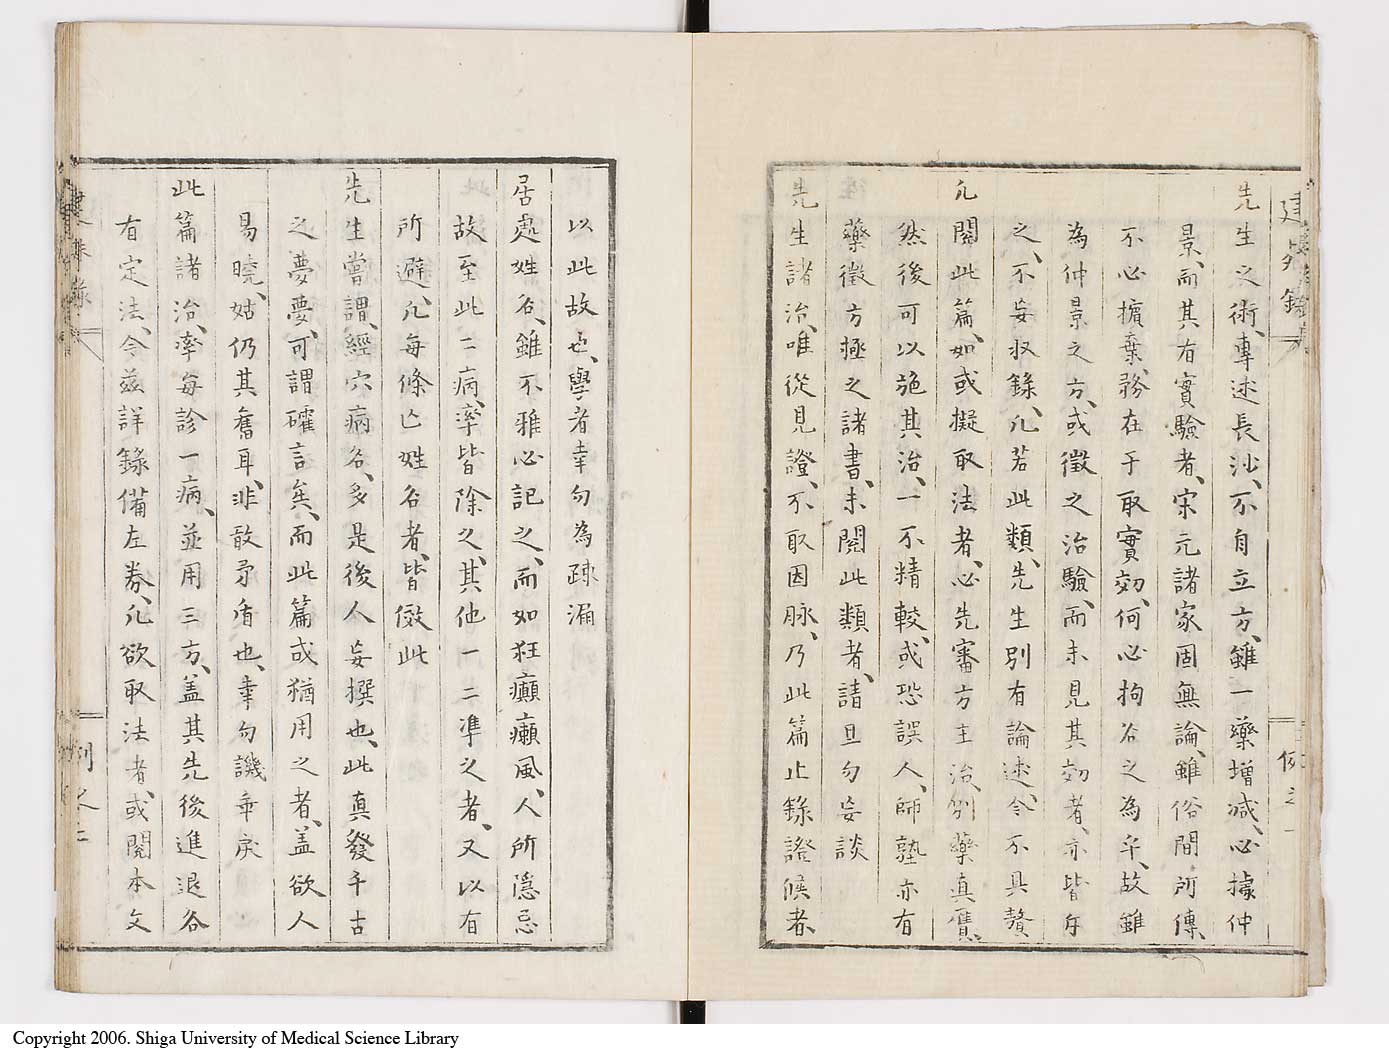 先生之術、專述長沙、不自立方、雖一藥増減、必據仲
景、而其有實驗者、宋元諸家固無論、雖俗間所傳、
不必擯棄、務在于取實効、何必拘谷之為乎、故雖
為仲景之方、或徵之治驗、而未見其効者、亦皆舟
之、不妄収錄、凢若此類、先生別有論述、今不具贅
凢閱此篇、如或擬取法者、必先審方主治、別藥真贋、
然後可以施其治、一不精較、或恐誤人、師塾亦有
藥徵方極之諸書、未閱此類者、請且勿妄談
先生諸治、唯從見證、不取因脉、乃此篇止錄證候者、
以此故也、學者幸勿為疎漏
居處姓名、雖不雅必記之、而如狂癲癩風、人所隱忌
故至此二病、率皆除之、其他一二準之者、又以有
所避、凢每條亡姓名者、皆倣此
先生嘗謂、經穴病名、多是後人妄撰也、此真發千古
之夢夢、可謂確言矣、而此篇或猶用之者、盖欲人
易曉、姑仍其舊耳、非敢矛盾也、幸勿譏乖戾
此篇諸治、率每診一病、並用三方、盖其先後進退各
有定法、今茲詳錄備左券、凢欲取法者、或閱本文
建殊錄
例之上
建殊錄
例之一
Copyright 2006. Shiga University of Medical Science Library